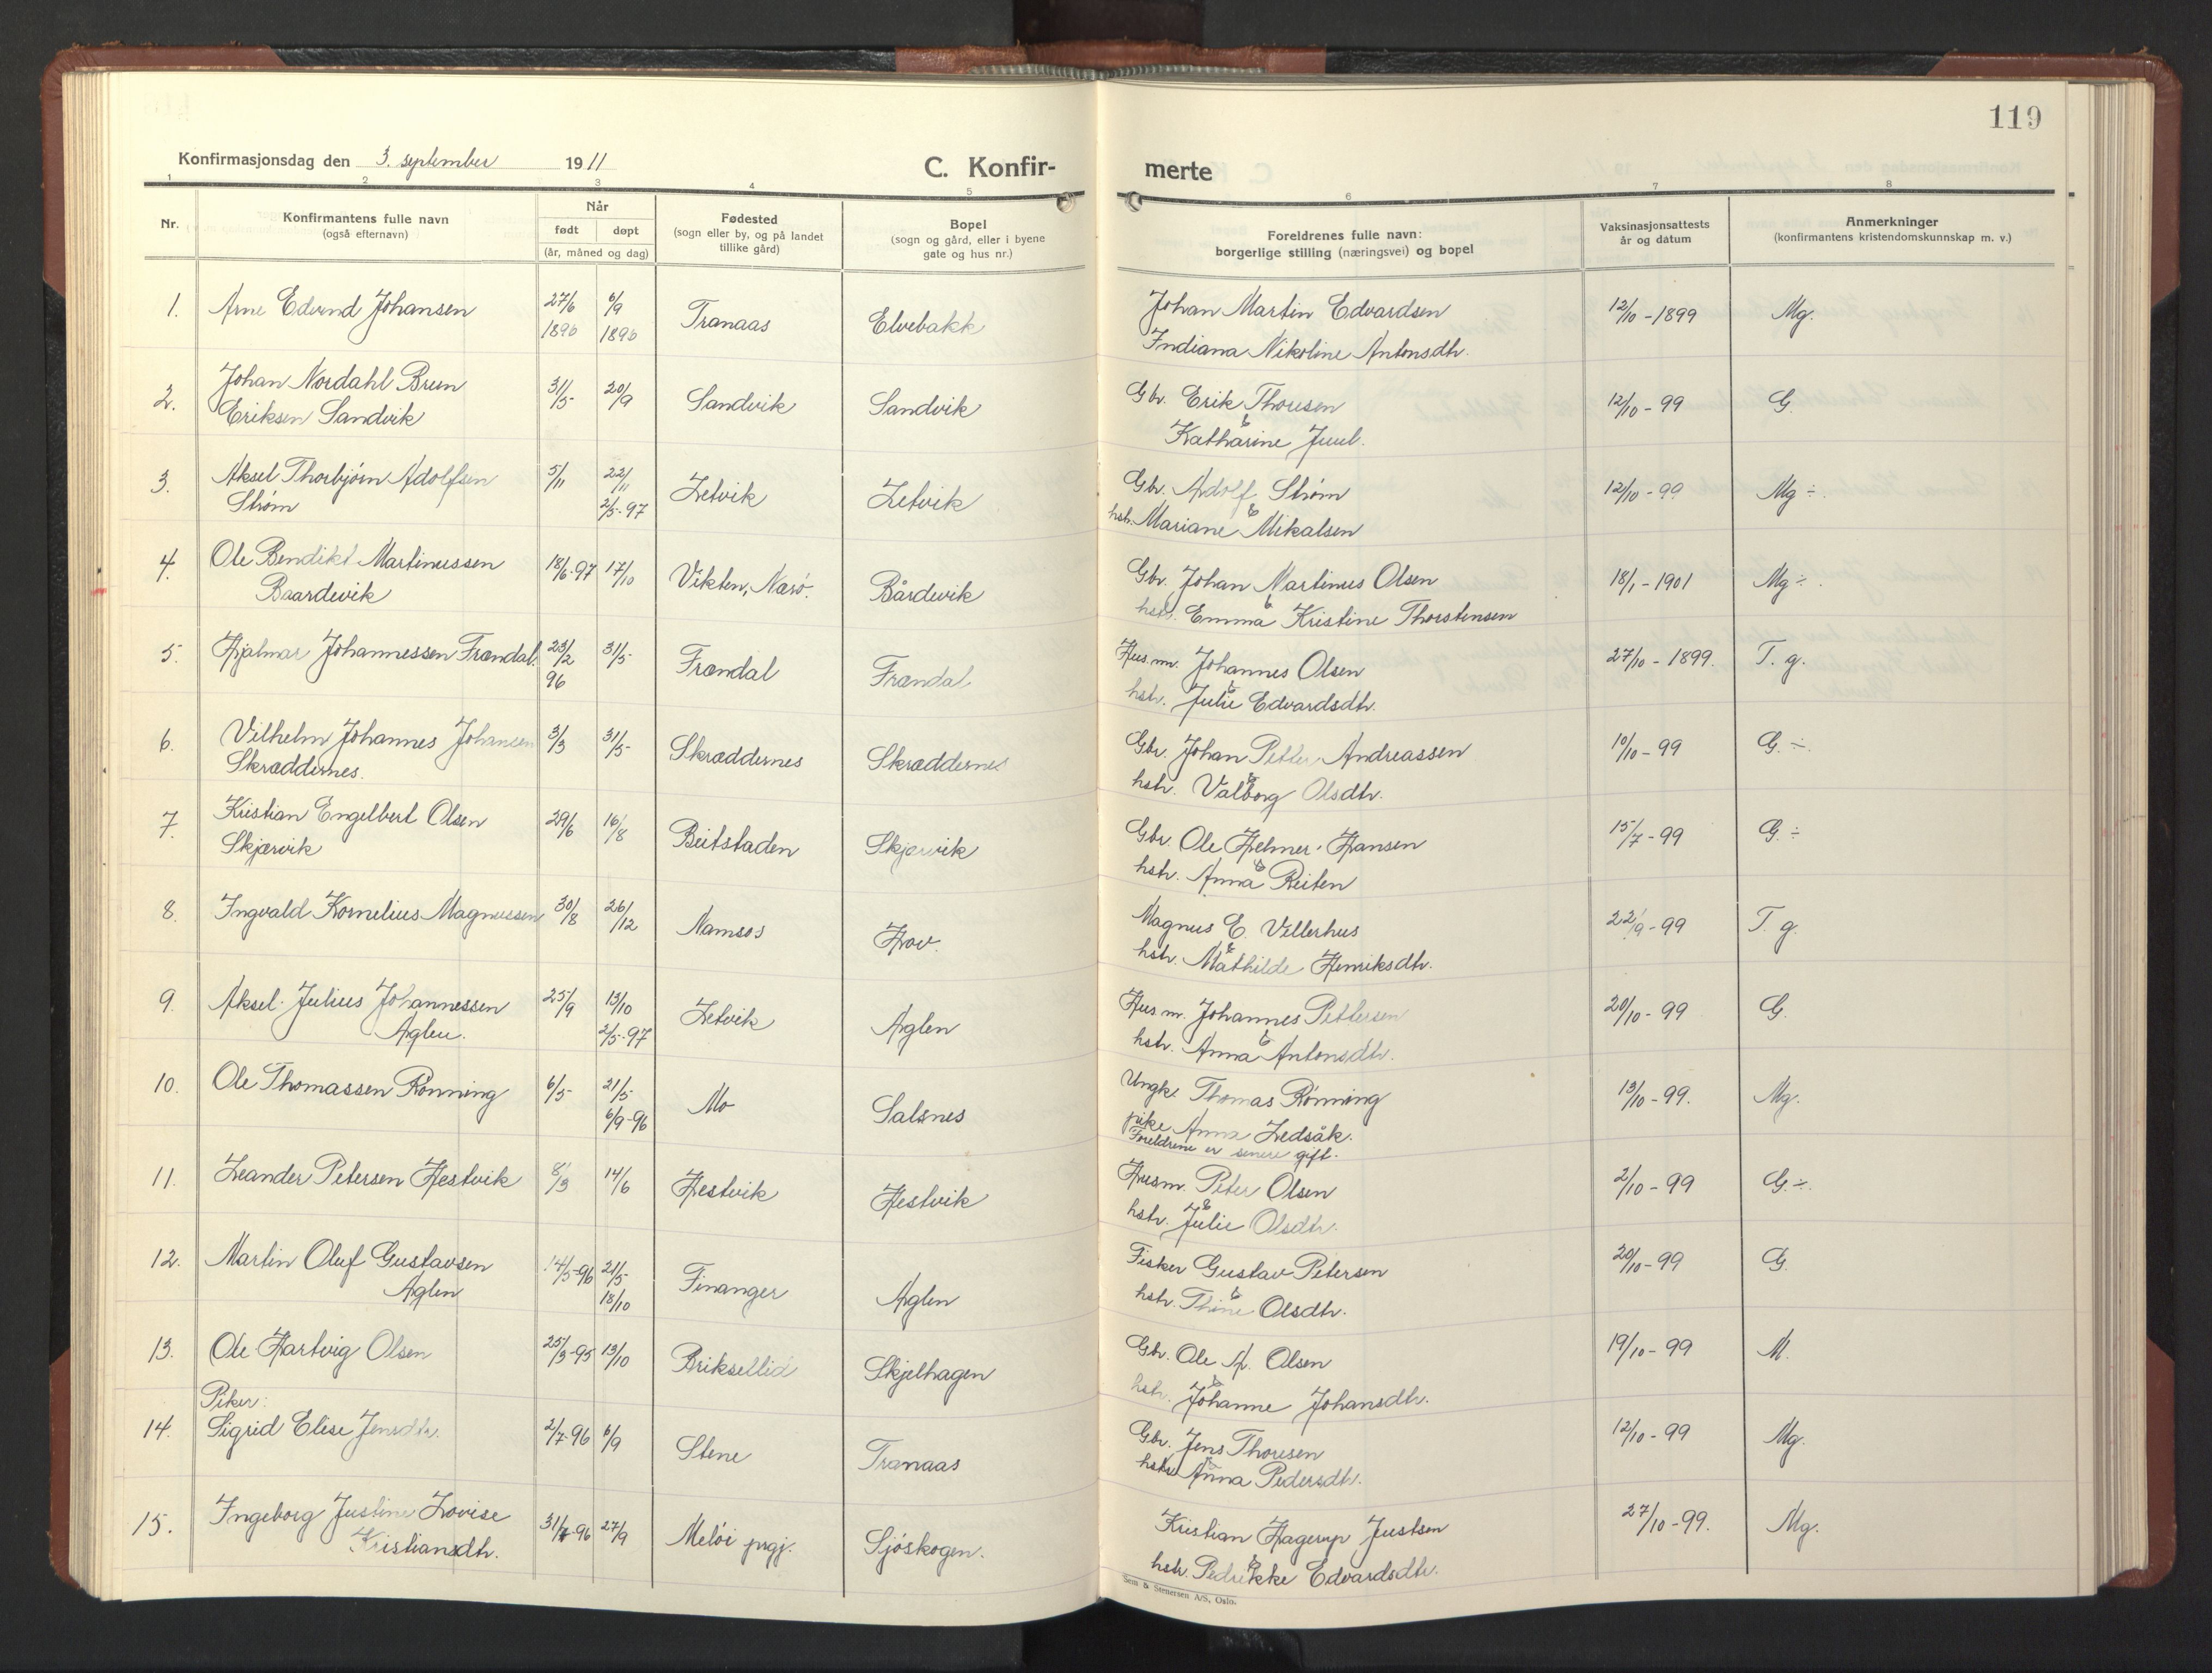 119
Konfirmasjonsdag den 3. september 1911
C. Konfir- merte
1 2 3 4 5 6 7 8
Nr.
Konfirmantens fulle navn
(også efternavn)
Når
født døpt
(år, måned og dag)
Fødested
(sogn eller by, og på landet
tillike gård)
Bopel
(sogn og gård, eller i byene
gate og hus nr.)
Foreldrenes fulle navn:
borgerlige stilling (næringsvei) og bopel
Vaksinasjonsattests
år og datum
Anmerkninger
(konfirmantens kristendomskunnskap m. v.)
1. Arne Edvind Johansen 27/6 1896 6/9 1896 Tranaas Elvebakk Johan Martin Edvardsen 12/10 - 1899 Mg.
Indiana Nikoline Antonsdtr.
2. Johan Nordahl Brun 31/5 20/9 Sandvik Sandvik Gbr. Erik Thoresen 12/10 - 99 G.
Eriksen Sandvik & Katharine Juul.
3. Aksel Thorbjörn Adolfsen 5/11 22/11 Letvik Letvik Gbr. Adolf Strøm 12/10 - 99 Mg ÷.
Strøm 2/5-97 & hstr. Mariane Mikalsen
4. Ole Bendikt Martinussen 18/6-97 17/10 Vikten, Narö. Bårdevik Gbr. Johan Martinus Olsen 18/1 - 1901 Mg ÷.
Baardevik & hstr. Emma Kristine Thorstensen
5. Hjalmar Johannessen Frændal. 23/2 96 31/5 Frændal Frændal Husm. Johannes Olsen 27/10 - 1899. T. g.
& hstr. Julie Edvardsdtr.
6. Vilhelm Johannes Johansen 3/3 31/5 Skræddernes Skræddernes Gbr. Johan Petter Andreassen 10/10 - 99 G. ÷.
Skræddernes. & hstr. Valborg Olsdtr.
7. Kristian Engelbert Olsen 29/6 16/8 Beitstaden Skjærvik Gbr. Ole Helmer Hansen 15/7 - 99 G ÷
Skjærvik & hstr. Anna Reiten
8. Ingvald Kornelius Magnussen 30/8 26/12 Namsos Hov. Magnus E. Vellerhus 22/9 - 99 T. g.
& hstr. Mathilde Henriksdtr.
9. Aksel Julius Johannessen 25/9 13/10 Letvik Aglen Husm. Johannes Pettersen 20/10 - 99 G.
Aglen. 2/5-97 & hstr. Anna Antonsdtr.
10. Ole Thomassen Rönning 6/5 21/5 Mo Salsnes Ungk. Thomas Rönning 13/10 - 99. Mg.
6/9-96 pike Anna Ledsåk.
Foreldrene er senere gift.
11. Leander Petersen Hestvik 8/3 14/6 Hestvik Hestvik Husm. Peter Olsen 2/10 - 99 G ÷.
& hstr. Julie Olsdtr.
12. Martin Oluf Gustavsen 14/5-96 21/5 Finanger Aglen Fisker Gustav Petersen 20/10 - 99 G.
Aglen 18/10 & hstr. Thine Olsdtr.
13. Ole Hartvig Olsen 25/3-95 13/10 Briksellid Skjelhagen Gbr. Ole A. Olsen 19/10 - 99 M.
& hstr. Johanne Johansdtr.
Piker:
14. Sigrid Elise Jensdtr. 2/7-96 6/9 Stene Tranaas Gbr. Jens Thoresen 12/10 - 99 Mg.
& hstr. Anna Pedersdtr.
15. Ingeborg Justine Lovise 31/7-96 27/9 Melöi prgj. Sjöskogen. Kristian Hagerup Justsen 27/10 - 99. Mg.
Kristiansdtr. & hstr. Pedrikke Edvardsdtr.
Sem & Stenersen A/S, Oslo.